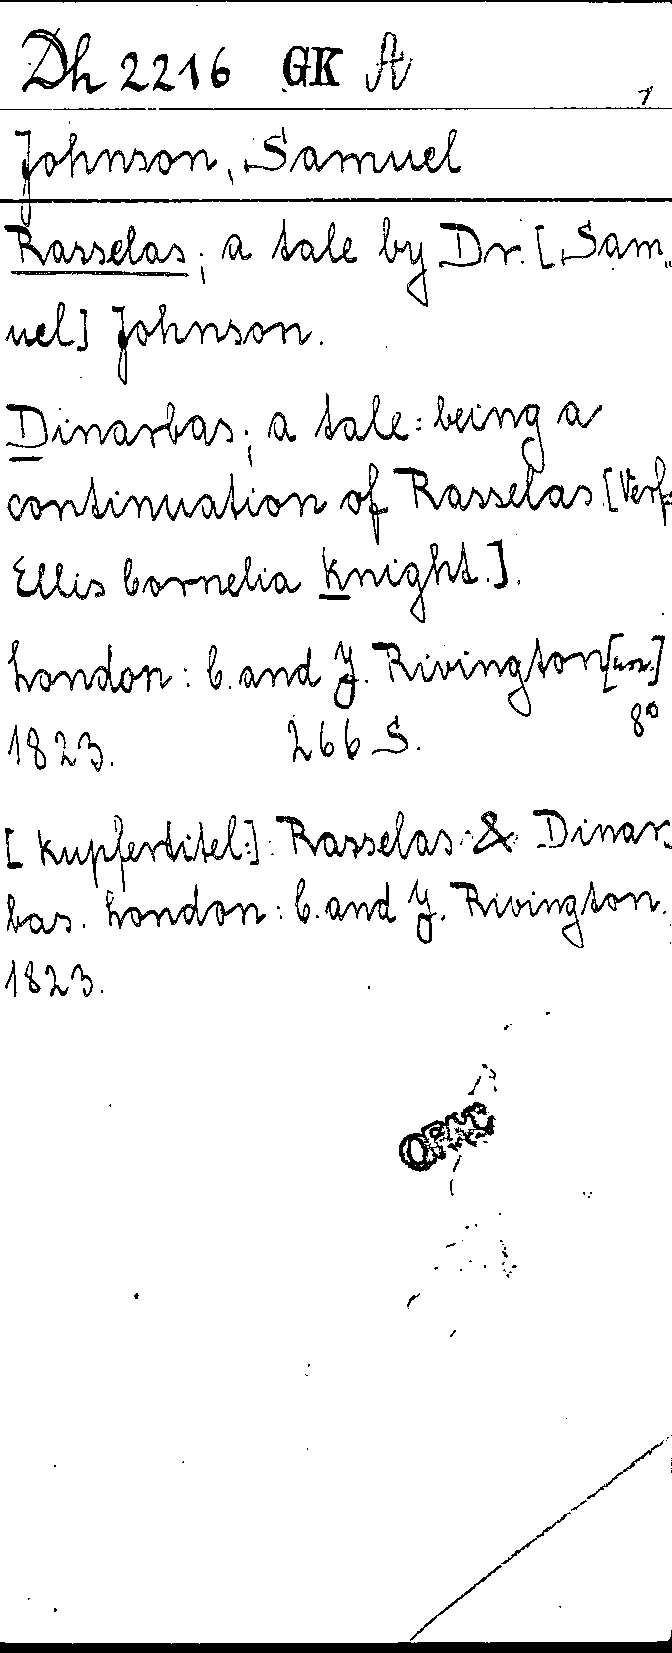 Dh 2216 GK A
1
Johnson, Samuel
Rasselas; a tale by Dr. [Sam-
uel] Johnson.
Dinarbas; a tale: being a
continuation of Rasselas [Verf.
Ellis Cornelia Knight.].
London: C. and J. Rivington [usw.]
1823. 266 S. 8°
[Kupfertitel:] Rasselas & Dinar-
bas. London: C. and J. Rivington.
1823.
OPAC